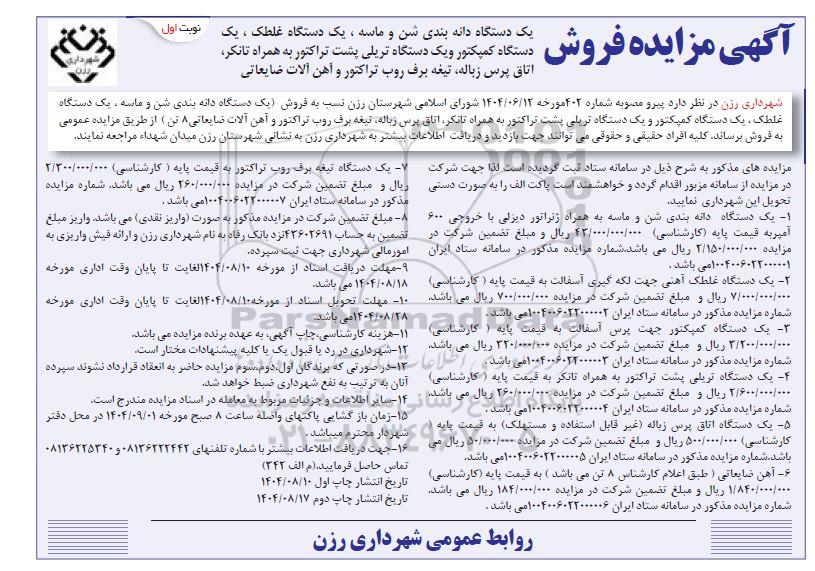 آگهی مزایده فروش
یک دستگاه دانه بندی شن و ماسه ، یک دستگاه غلطک ، یک
دستگاه کمپکتور ویک دستگاه تریلی پشت تراکتور به همراه تانکر،
اتاق پرس زباله، تیغه برف روب تراکتور و آهن آلات ضایعاتی
نوبت اول
شهرداری
رزن
شهرداری رزن در نظر دارد پیرو مصوبه شماره ۴۰۲مورخه ۱۴۰۴/۰۶/۱۲ شورای اسلامی شهرستان رزن نسب به فروش (یک دستگاه دانه بندی شن و ماسه ، یک دستگاه
غلطک ، یک دستگاه کمپکتور و یک دستگاه تریلی پشت تراکتور به همراه تانکر، اتاق پرس زباله، تیغه برف روب تراکتور و آهن آلات ضایعاتی۸ تن ) از طریق مزایده عمومی
به فروش برساند. کلیه افراد حقیقی و حقوقی می توانند جهت بازدید و دریافت اطلاعات بیشتر به شهرداری رزن به نشانی شهرستان رزن میدان شهداء مراجعه نمایند.
مزایده های مذکور به شرح ذیل در سامانه ستاد ثبت گردیده است لذا جهت شرکت
در مزایده از سامانه مزبور اقدام گردد و خواهشمند است پاکت الف را به صورت دستی
تحویل این شهرداری نمایید.
۱- یک دستگاه دانه بندی شن و ماسه به همراه ژنراتور دیزلی با خروجی ۶۰۰
آمپربه قیمت پایه (کارشناسی) ۴۳/۰۰۰/۰۰۰/۰۰۰ ریال و مبلغ تضمین شرکت در
مزایده ۲/۱۵۰/۰۰۰/۰۰۰ ریال می باشد.شماره مزایده مذکور در سامانه ستاد ایران
۱۰۰۴۰۰۶۰۲۲۰۰۰۰۰۱می باشد .
۲- یک دستگاه غلطک آهنی جهت لکه گیری آسفالت به قیمت پایه ( کارشناسی)
۷/۰۰۰/۰۰۰/۰۰۰ ریال و مبلغ تضمین شرکت در مزایده ۷۰۰/۰۰۰/۰۰۰ ریال می باشد.
شماره مزایده مذکور در سامانه ستاد ایران ۱۰۰۴۰۰۶۰۲۲۰۰۰۰۰۲می باشد .
۳- یک دستگاه کمپکتور جهت پرس آسفالت به قیمت پایه ( کارشناسی)
۲/۲۰۰/۰۰۰/۰۰۰ ریال و مبلغ تضمین شرکت در مزایده ۲۲۰/۰۰۰/۰۰۰ ریال می باشد.
شماره مزایده مذکور در سامانه ستاد ایران ۱۰۰۴۰۰۶۰۲۲۰۰۰۰۰۳می باشد .
۴- یک دستگاه تریلی پشت تراکتور به همراه تانکر به قیمت پایه ( کارشناسی)
۲/۶۰۰/۰۰۰/۰۰۰ ریال و مبلغ تضمین شرکت در مزایده ۲۶۰/۰۰۰/۰۰۰ ریال می باشد.
شماره مزایده مذکور در سامانه ستاد ایران ۱۰۰۴۰۰۶۰۲۲۰۰۰۰۰۴می باشد .
۵- یک دستگاه اتاق پرس زباله (غیر قابل استفاده و مستهلک) به قیمت پایه (
کارشناسی) ۵۰۰/۰۰۰/۰۰۰ ریال و مبلغ تضمین شرکت در مزایده ۵۰/۰۰۰/۰۰۰ ریال می
باشد.شماره مزایده مذکور در سامانه ستاد ایران ۱۰۰۴۰۰۶۰۲۲۰۰۰۰۰۵می باشد.
۶- آهن ضایعاتی ( طبق اعلام کارشناس ۸ تن می باشد ) به قیمت پایه (کارشناسی)
۱/۸۴۰/۰۰۰/۰۰۰ ریال و مبلغ تضمین شرکت در مزایده ۱۸۴/۰۰۰/۰۰۰ ریال می باشد.
شماره مزایده مذکور در سامانه ستاد ایران ۱۰۰۴۰۰۶۰۲۲۰۰۰۰۰۶می باشد .
۷- یک دستگاه تیغه برف روب تراکتور به قیمت پایه ( کارشناسی) ۲/۳۰۰/۰۰۰/۰۰۰
ریال و مبلغ تضمین شرکت در مزایده ۲۶۰/۰۰۰/۰۰۰ ریال می باشد. شماره مزایده
مذکور در سامانه ستاد ایران ۱۰۰۴۰۰۶۰۲۲۰۰۰۰۰۷می باشد .
۸- مبلغ تضمین شرکت در مزایده مذکور به صورت (واریز نقدی) می باشد. واریز مبلغ
تضمین به حساب ۴۳۶۰۲۶۹۱نزد بانک رفاه به نام شهرداری رزن و ارائه فیش واریزی به
امورمالی شهرداری جهت ثبت سپرده.
۹-مهلت دریافت اسناد از مورخه ۱۴۰۴/۰۸/۱۰لغایت تا پایان وقت اداری مورخه
۱۴۰۴/۰۸/۱۸ می باشد.
۱۰- مهلت تحویل اسناد از مورخه۱۴۰۴/۰۸/۱۰لغایت تا پایان وقت اداری مورخه
۱۴۰۴/۰۸/۲۸می باشد.
۱۱-هزینه کارشناسی،چاپ آگهی، به عهده برنده مزایده می باشد.
۱۲-شهرداری در رد یا قبول یک یا کلیه پیشنهادات مختار است.
۱۳-در صورتی که برندگان اول،دوم،سوم مزایده حاضر به انعقاد قرارداد نشوند سپرده
آنان به ترتیب به نفع شهرداری ضبط خواهد شد.
۱۴-سایر اطلاعات و جزئیات مربوط به معامله در اسناد مزایده مندرج است.
۱۵-زمان باز گشایی پاکتهای واصله ساعت ۸ صبح مورخه ۱۴۰۴/۰۹/۰۱ در محل دفتر
شهردار محترم میباشد .
۱۶-جهت دریافت اطلاعات بیشتر با شماره تلفنهای ۰۸۱۳۶۲۲۲۴۴۲ و ۰۸۱۳۶۲۲۵۳۴۰
تماس حاصل فرمایید.(م الف ۳۴۲)
تاریخ انتشار چاپ اول ۱۴۰۴/۰۸/۱۰
تاریخ انتشار چاپ دوم ۱۴۰۴/۰۸/۱۷
روابط عمومی شهرداری رزن
ParsNamadData